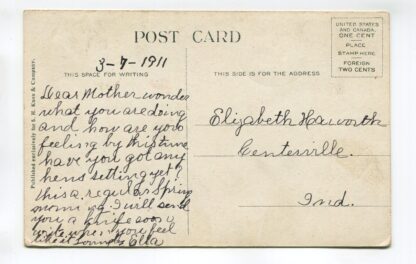 POST CARD
UNITED STATES
AND CANADA
ONE CENT
PLACE
STAMP HERE
FOREIGN
TWO CENTS
3-7-1911
THIS SPACE FOR WRITING
THIS SIDE IS FOR THE ADDRESS
Published exclusively by S. H. Knox & Company.
Dear Mother wonder
what you are doing
and how are you
feeling by this time
have you got any
hens setting yet?
this a regular Spring
morning I will send
you a knife soon
write when you feel
like it Ella
Elizabeth Haworth
Centerville.
Ind.